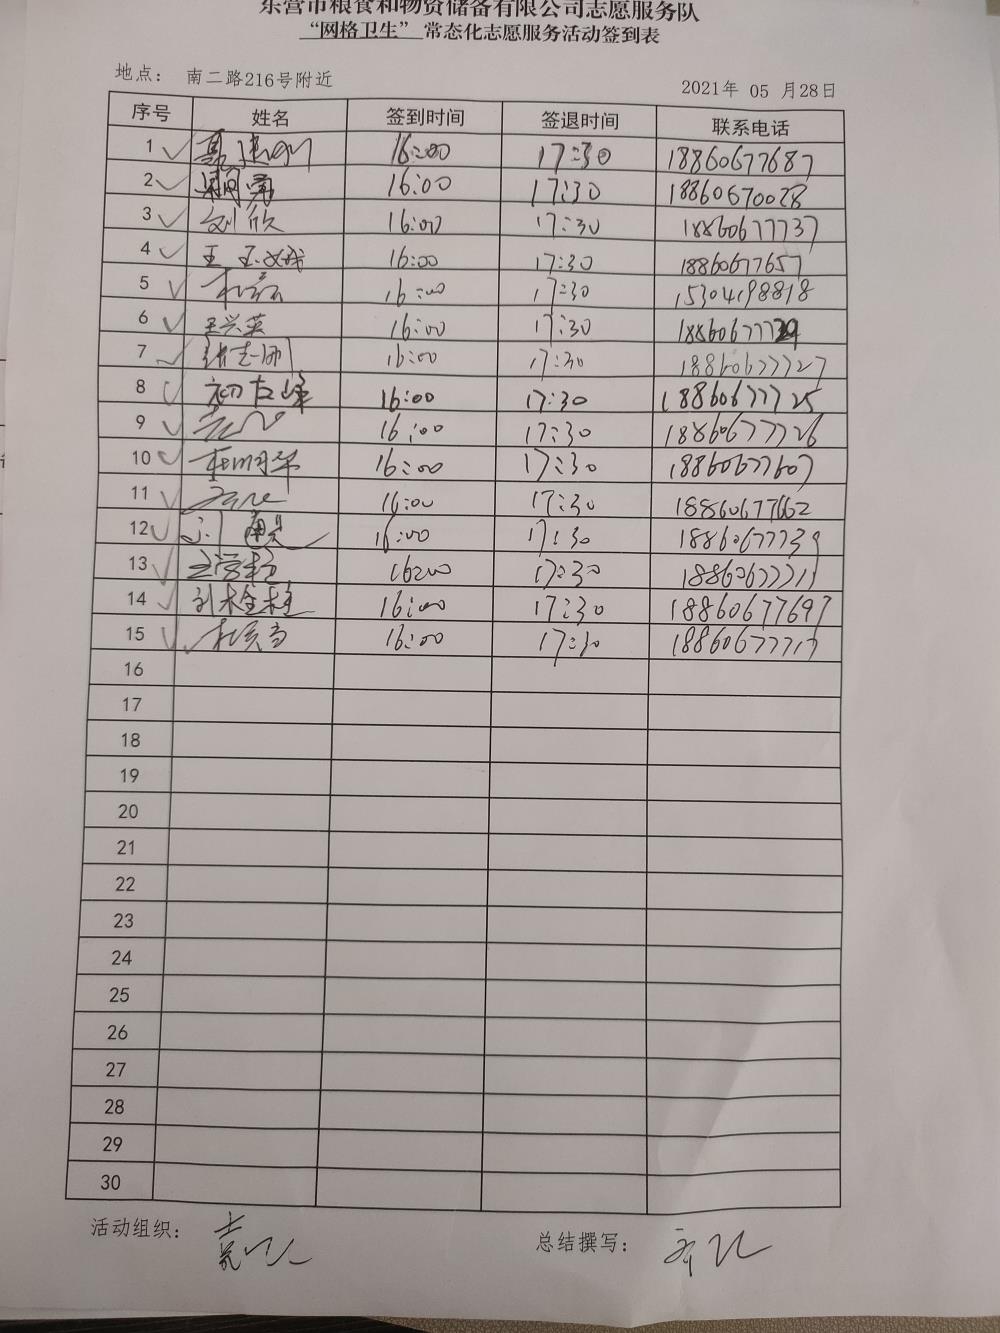 东营市粮食和物资储备有限公司志愿服务队
“网格卫生” 常态化志愿服务活动签到表
地点： 南二路216号附近 2021年 05 月28日
序号 姓名 签到时间 签退时间 联系电话
1 16:00 17:30 18860677687
2 16:00 17:30 18860670028
3 刘欣 16:00 17:30 18860677737
4 16:00 17:30 18860677657
5 16:00 17:30 15304198818
6 王兴英 16:00 17:30 188606777
7 16:00 17:30 18860677727
8 初友峰 16:00 17:30 18860677725
9 16:00 17:30 18860677726
10 16:00 17:30 18860677607
11 16:00 17:30 18860677662
12 16:00 17:30 18860677739
13 16:00 17:30
14 16:00 17:30 18860677697
15 16:00 17:30 18860677717
16
17
18
19
20
21
22
23
24
25
26
27
28
29
30
活动组织： 总结撰写：